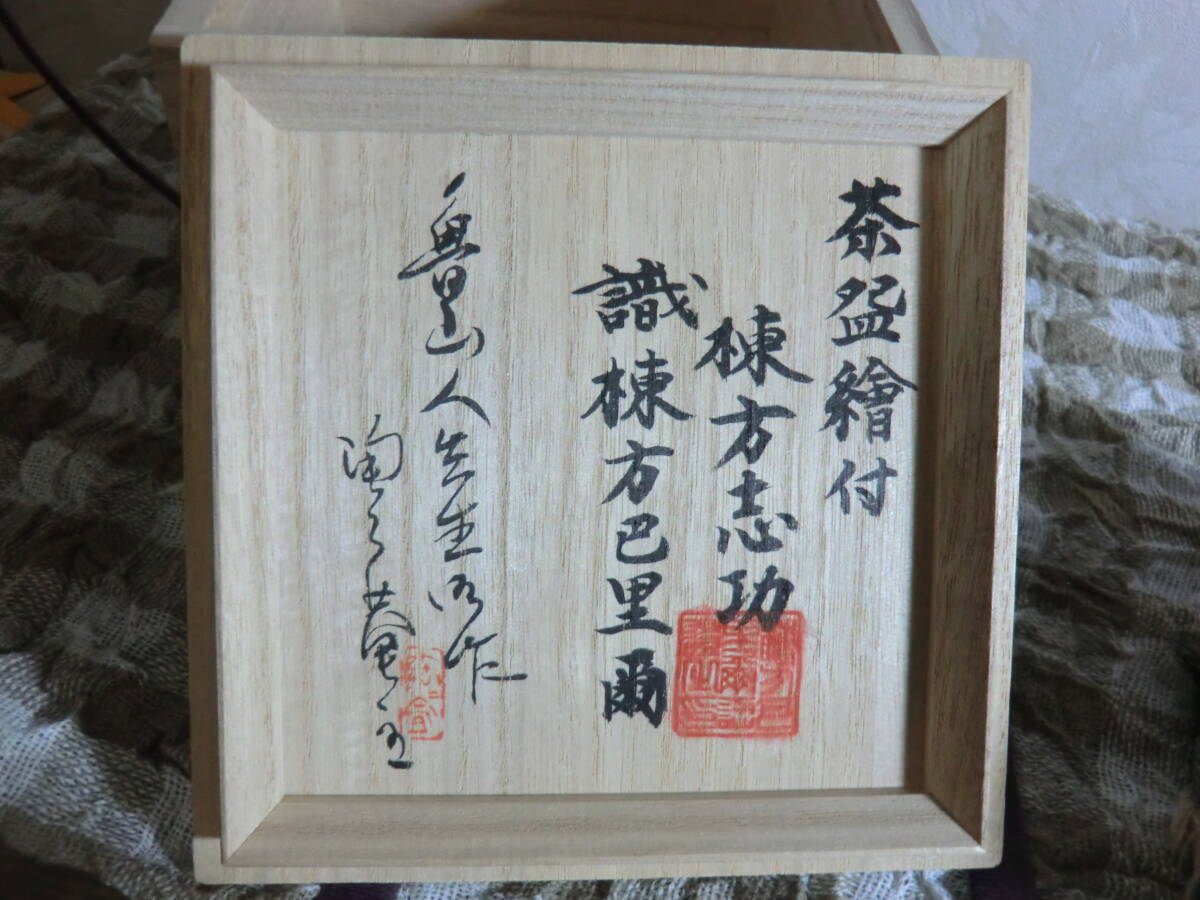 茶盌繪付
棟方志功
識棟方巴里爾
魯山人先生御作
陶々菴